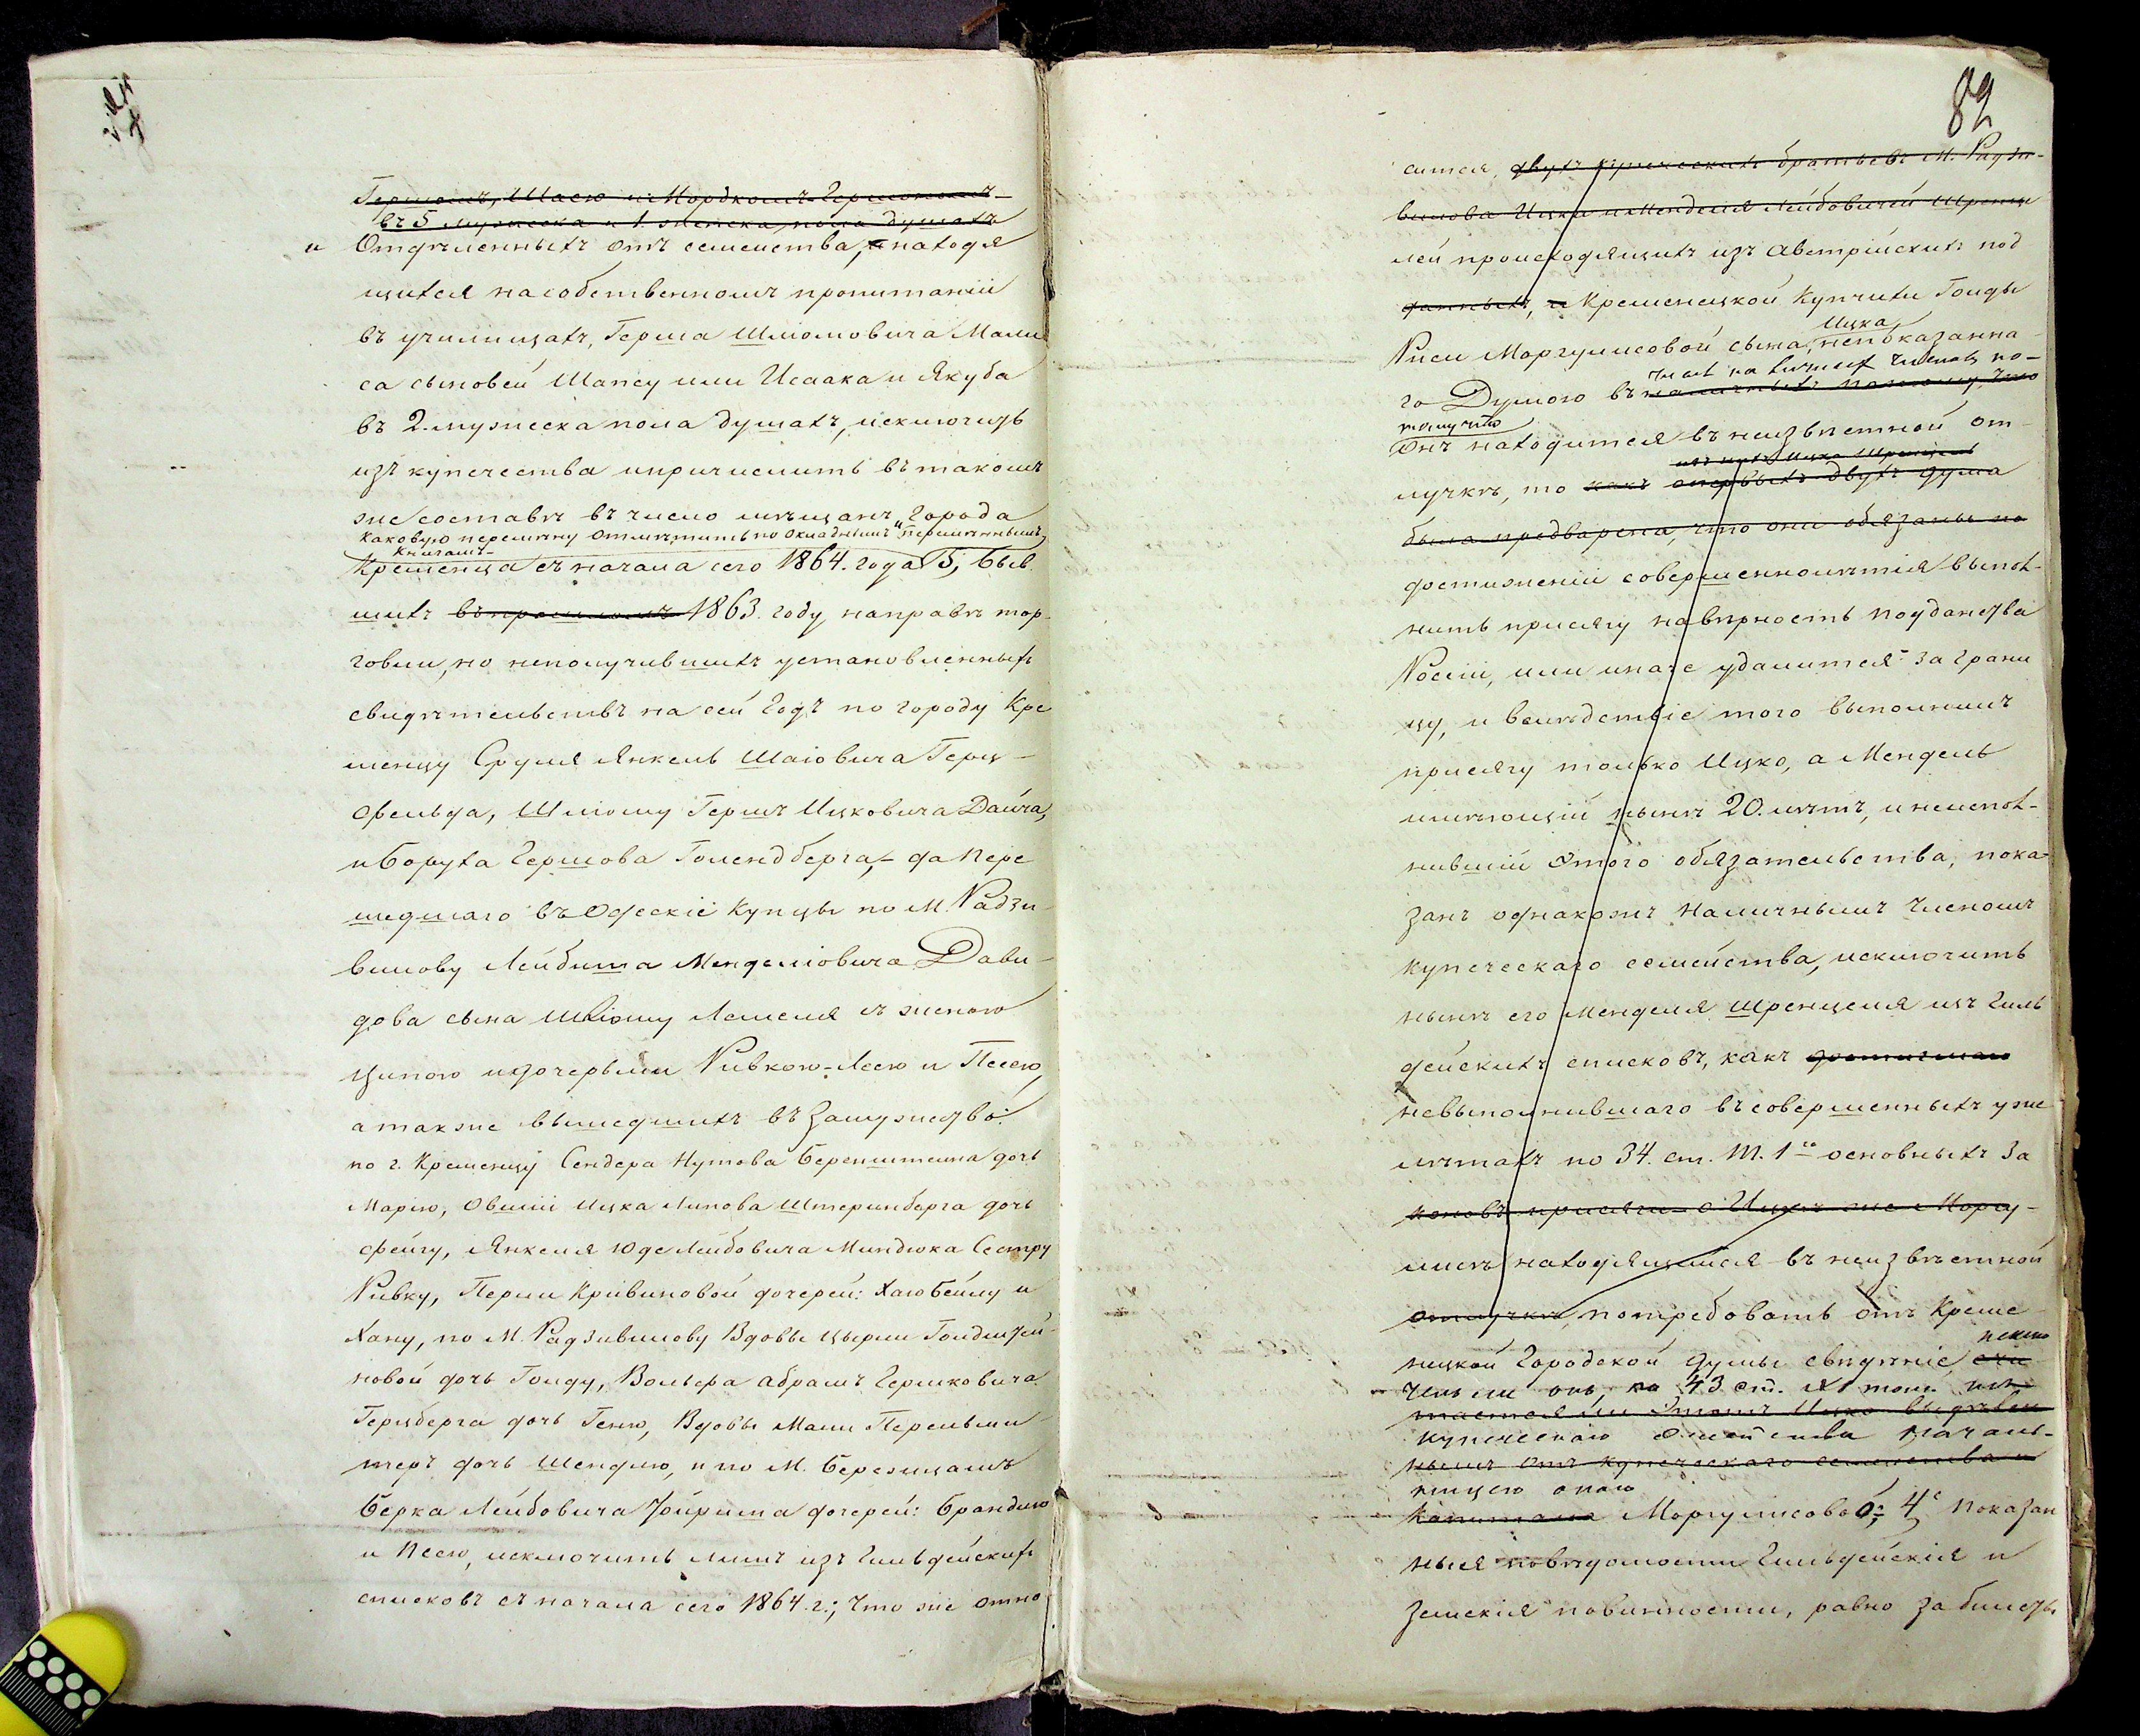 Гершомъ, Шаею и Мордкомъ-Гершономъ
въ 5 мужеска и 1 женска пола душахъ
и Отдѣленныхъ отъ семейства, и находя
щихся на собственномъ пропитаніи
въ училищахъ, Герша Шліомовича Мали
са сыновей Шапсу или Исаака и Якуба
въ 2. мужеска пола душахъ, исключивъ
изъ купечества и причислить въ такомъ
же составѣ въ число мѣщанъ города
каковую перемѣну отмѣтить по окладнымъ
книгамъ
Кременца съ начала сего 1864. года Б, быв
шихъ въ прошломъ 1863. году на правѣ тор-
говли, но неполучившихъ установленныхъ
свидѣтельствъ на сей годъ по городу Кре
менцу Сруля Янкель Шаіовича Герц-
фельда, Шліому Гершъ Ицковича Дайча,
и Боруха Гершова Голендберга, – да пере
шедшаго въ Одескіе купцы по М. Радзи-
вилову Лейбиша Менделіовича Дави-
дова сына Шліому Лемеля съ женою
Ципою и дочерьми Ривкою-Леею и Песею,
а также вышедшихъ въ замужество:
по г. Кременцу Сендера Нутова Беренштеина дочь
Марію, Овшіи Ицка Липова Штеринберга дочь
Фейгу, Янкеля Юде Лейбовича Миндюка Сестру
Ривку, Перли Кривиновой дочерей: Хаю Бейлу и
Хану, по М. Радзивилову Вдовы Цырли Гольдштей-
новой дочь Гольду, Вольфа Абрамъ Гершковича
Герцберга дочь Геню, Вдовы Мали Перельми-
теръ дочь Шендлю, и по М. Березцамъ
Берка Лейбовича дочерей: Брандлю
и Песю, исключить лишь изъ Гильдейскихъ
списковъ съ начала сего 1864. г.; что же отно
82
сится, двухъ купеческихъ братьевъ М. Радзи-
вилова Ицки и Менделя Лейбовичей Шренце
лей происходящихъ изъ Австрійскихъ под
данныхъ, и Кременецкой Купчихи Гольды
Ицка
Риси Моргулисовой сына, непоказанна
го Думою въ наличныхъ потому, что
тому что
онъ находится въ неизвѣстной от-
изъ нихъ Ицко Шренцель
лучкѣ, то какъ о первыхъ двухъ дума
была предварена, что они обязаны по
достиженіи совершеннолѣтія выпол-
нить присягу на вѣрность подданства
Россіи, или иначе удалится за грани
цу, и вслѣдствіе того выполнилъ
присягу только Ицко, а Мендель
имѣющій нынѣ 20. лѣтъ, и неиспол-
нившій этого обязательства, пока-
занъ однакожъ наличнымъ членомъ
купеческаго семейства, исключить
нынѣ его Менделя Шренцеля изъ Гиль
дейскихъ списковъ, какъ достигшаго
невыполнившаго въ совершенныхъ уже
лѣтахъ по 34. ст. Т. 1го основныхъ За
коновъ присяги – о Ицкѣ же Моргу-
лисѣ находящемся въ неизвѣстной
отлучкѣ, потребовать отъ Креме
нецкой Городской Думы свѣдѣніе
43 ст.
купеческаго семейства началь-
нымъ отъ купеческаго семейства и
ницею оною
Капитала Моргулисовой; 4е показан
ныя по вѣдомости Гильдейскія и
земскія повинности, равно за билеты